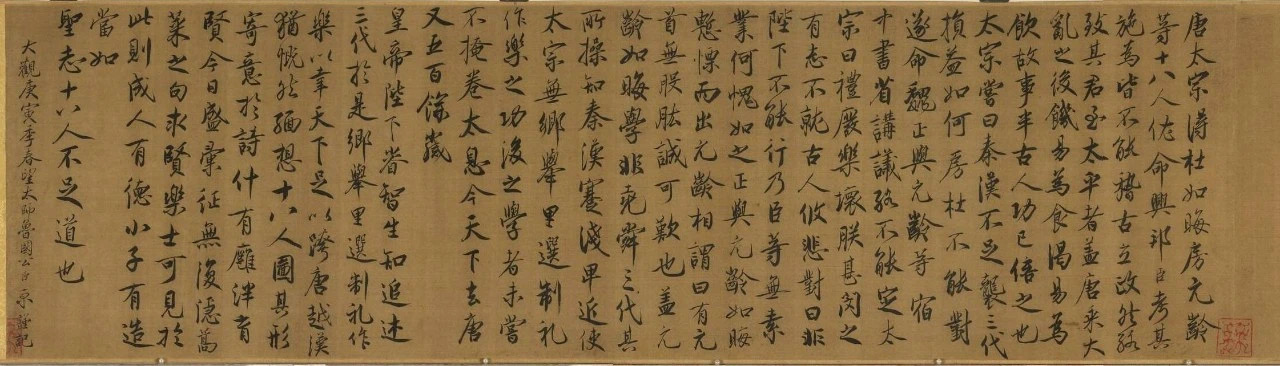 唐太宗得杜如晦房元齡
等十八人佐命興邦臣考其
施為皆不能稽古立政然終
致其君至太平者蓋唐承大
亂之後饑易為食渴易為
飲故事半古人功已倍之也
太宗嘗曰秦漢不足襲三代
損益如何房杜不能對
遂命魏正與元齡等宿
中書省講議終不能定太
宗曰禮廢樂壞朕甚閔之
有志不就古人攸悲對曰非
陛下不能行乃臣等無素
業何愧如之正與元齡如晦
慙慄而出元齡相謂曰有元
首無股肱誠可歎也蓋元
齡如晦學非堯舜三代其
所操知秦漢蹇淺卑近使
太宗無鄉舉里選制礼
作樂之功後之學者未嘗
不掩卷太息今天下去唐
又五百餘歲
皇帝陛下睿智生知追述
三代於是鄉舉里選制礼作
樂以幸天下足以跨唐越漢
猶慨然緬想十八人圖其形
寄意於詩什有廱泮育
賢今日盛彙征無復隱蒿
萊之句求賢樂士可見於
此則成人有德小子有造
當如
聖志十八人不足道也
大觀庚寅季春望太師魯國公臣京謹記